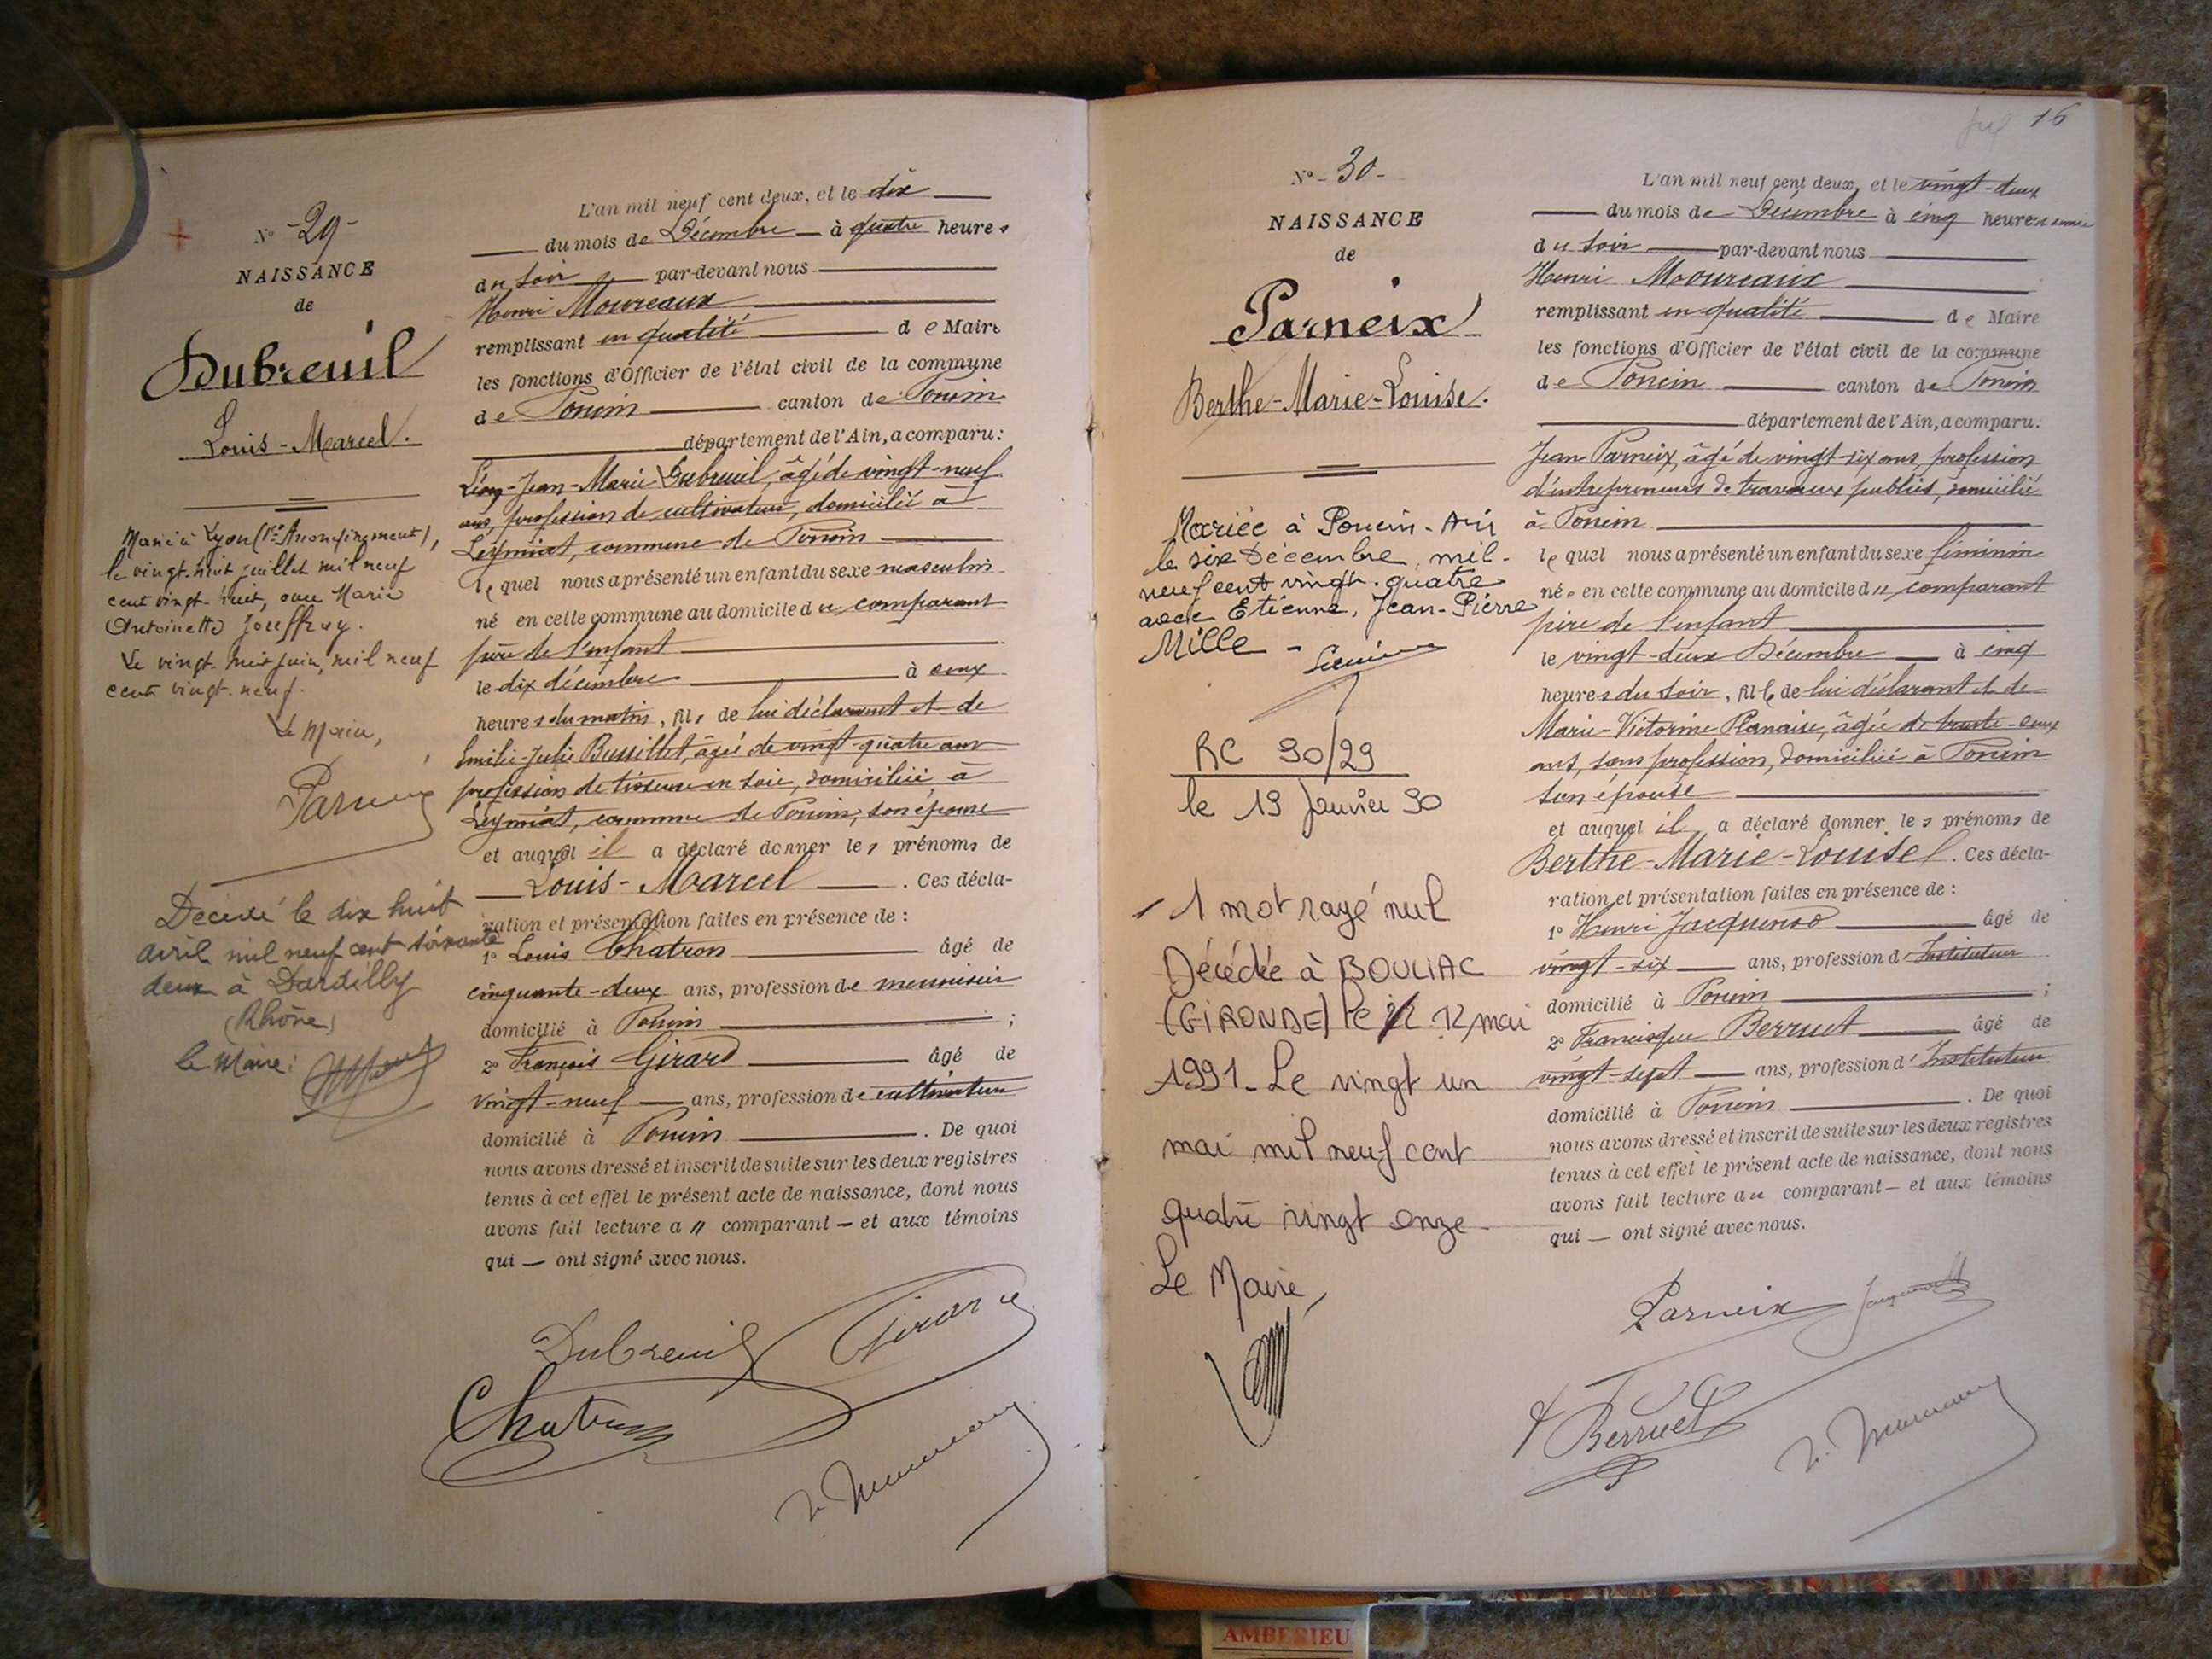 N° - 29 -
NAISSANCE
de
Dubreuil
Louis - Marcel.
Marié à Lyon (1er Arrondissement),
le vingt-huit juillet mil neuf
cent vingt-huit, avec Marie
Antoinette Jouffray.
Le vingt-huit juin, mil neuf
cent vingt-neuf.
Le Maire,
Parneix
Décédé le dix huit
avril mil neuf cent soixante
deux à Dardilly
(Rhône)
le Maire:
L'an mil neuf cent deux, et le dix
du mois de Décembre à quatre heures
du soir par-devant nous
Henri Moureaux
remplissant en qualité de Maire
les fonctions d'Officier de l'état civil de la commune
de Poncin canton de Poncin
département de l'Ain, a comparu:
Léon-Jean-Marie Dubreuil, âgé de vingt-neuf
ans, profession de cultivateur, domicilié à
Leymiat, commune de Poncin
lequel nous a présenté un enfant du sexe masculin
né en cette commune au domicile du comparant
père de l'enfant
le dix décembre à onze
heures du matin, fils de lui déclarant et de
Emilie-Julie Bussillet, âgée de vingt-quatre ans
profession de tisseuse en soie, domiciliée à
Leymiat, commune de Poncin, son épouse
et auquel il a déclaré donner les prénoms de
Louis - Marcel. Ces décla-
ration et présentation faites en présence de :
1° Louis Chatron âgé de
cinquante-deux ans, profession de menuisier
domicilié à Poncin ;
2° François Girard âgé de
vingt-neuf ans, profession de cultivateur
domicilié à Poncin. De quoi
nous avons dressé et inscrit de suite sur les deux registres
tenus à cet effet le présent acte de naissance, dont nous
avons fait lecture a // comparant — et aux témoins
qui — ont signé avec nous.
Dubreuil Girard
Chatron
16
N° - 30 -
NAISSANCE
de
Parneix
Berthe-Marie-Louise.
Mariée à Poncin - Ain
le six Décembre, mil-
neuf cent vingt-quatre
avec Etienne, Jean-Pierre
Mille -
RC 90/29
le 19 Janvier 90
1 mot rayé nul
Décédée à BOULIAC
(GIRONDE) le 12 mai
1991 - Le vingt un
mai mil neuf cent
quatre vingt onze -
Le Maire,
L'an mil neuf cent deux, et le vingt-deux
du mois de Décembre à cinq heures
du soir par-devant nous
Henri Moureaux
remplissant en qualité de Maire
les fonctions d'Officier de l'état civil de la commune
de Poncin canton de Poncin
département de l'Ain, a comparu:
Jean Parneix, âgé de vingt-six ans profession
d'entrepreneurs de travaux publics, domicilié
à Poncin
lequel nous a présenté un enfant du sexe féminin
née en cette commune au domicile du comparant
père de l'enfant
le vingt-deux Décembre à cinq
heures du soir, fille de lui déclarant et de
Marie-Victorine Planaise, âgée de
ans, sans profession, domiciliée à Poncin
son épouse
et auquel il a déclaré donner les prénoms de
Berthe-Marie-Louise. Ces décla-
ration et présentation faites en présence de :
1° Henri Jacquenod âgé de
vingt-six ans, profession d'Instituteur
domicilié à Poncin ;
2° Francisque Berruet âgé de
vingt-sept ans, profession d'Instituteur
domicilié à Poncin. De quoi
nous avons dressé et inscrit de suite sur les deux registres
tenus à cet effet le présent acte de naissance, dont nous
avons fait lecture au comparant — et aux témoins
qui — ont signé avec nous.
Parneix Jacquenod
Berruet
AMBERIEU